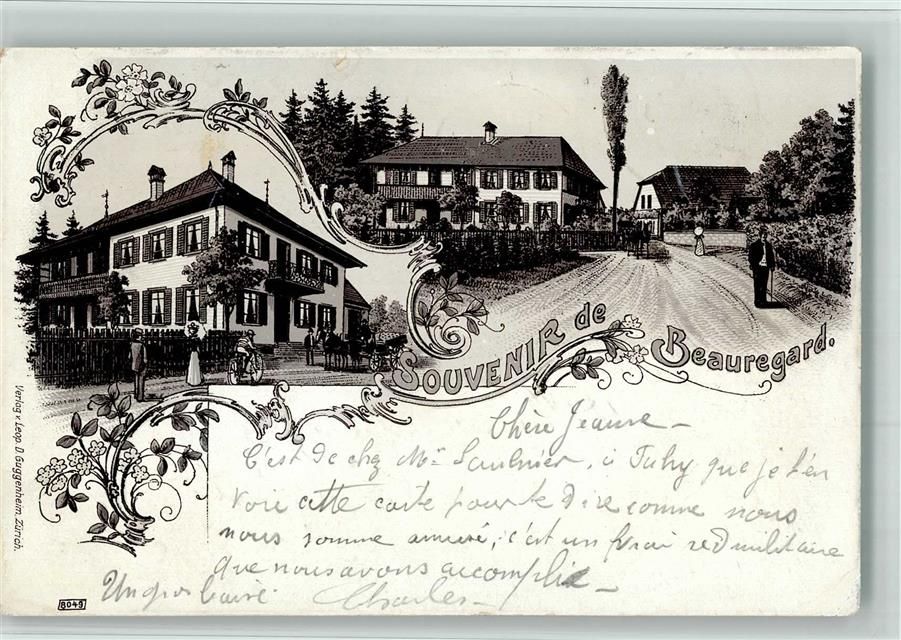 SOUVENIR de
Beauregard.
Chère Jeanne -
C'est de chez Mr Saulnier, à que je t'en
voie cette carte pour te dire comme nous
nous somme amusé, c'est un vrai red militaire
que nous avons accomplie -
Un gros baisé. Charles -
Verlag v. Leop. D. Guggenheim, Zürich.
8049